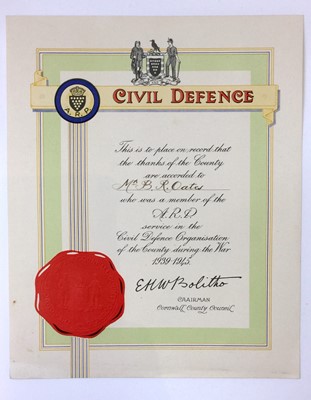 A.R.P.
CIVIL DEFENCE
This is to place on record that
the thanks of the County
are accorded to
Mr. B. R. Oates
who was a member of the
A.R.P.
service in the
Civil Defence Organisation
of the County during the War
1939-1945.
E H W Bolitho
CHAIRMAN
CORNWALL COUNTY COUNCIL